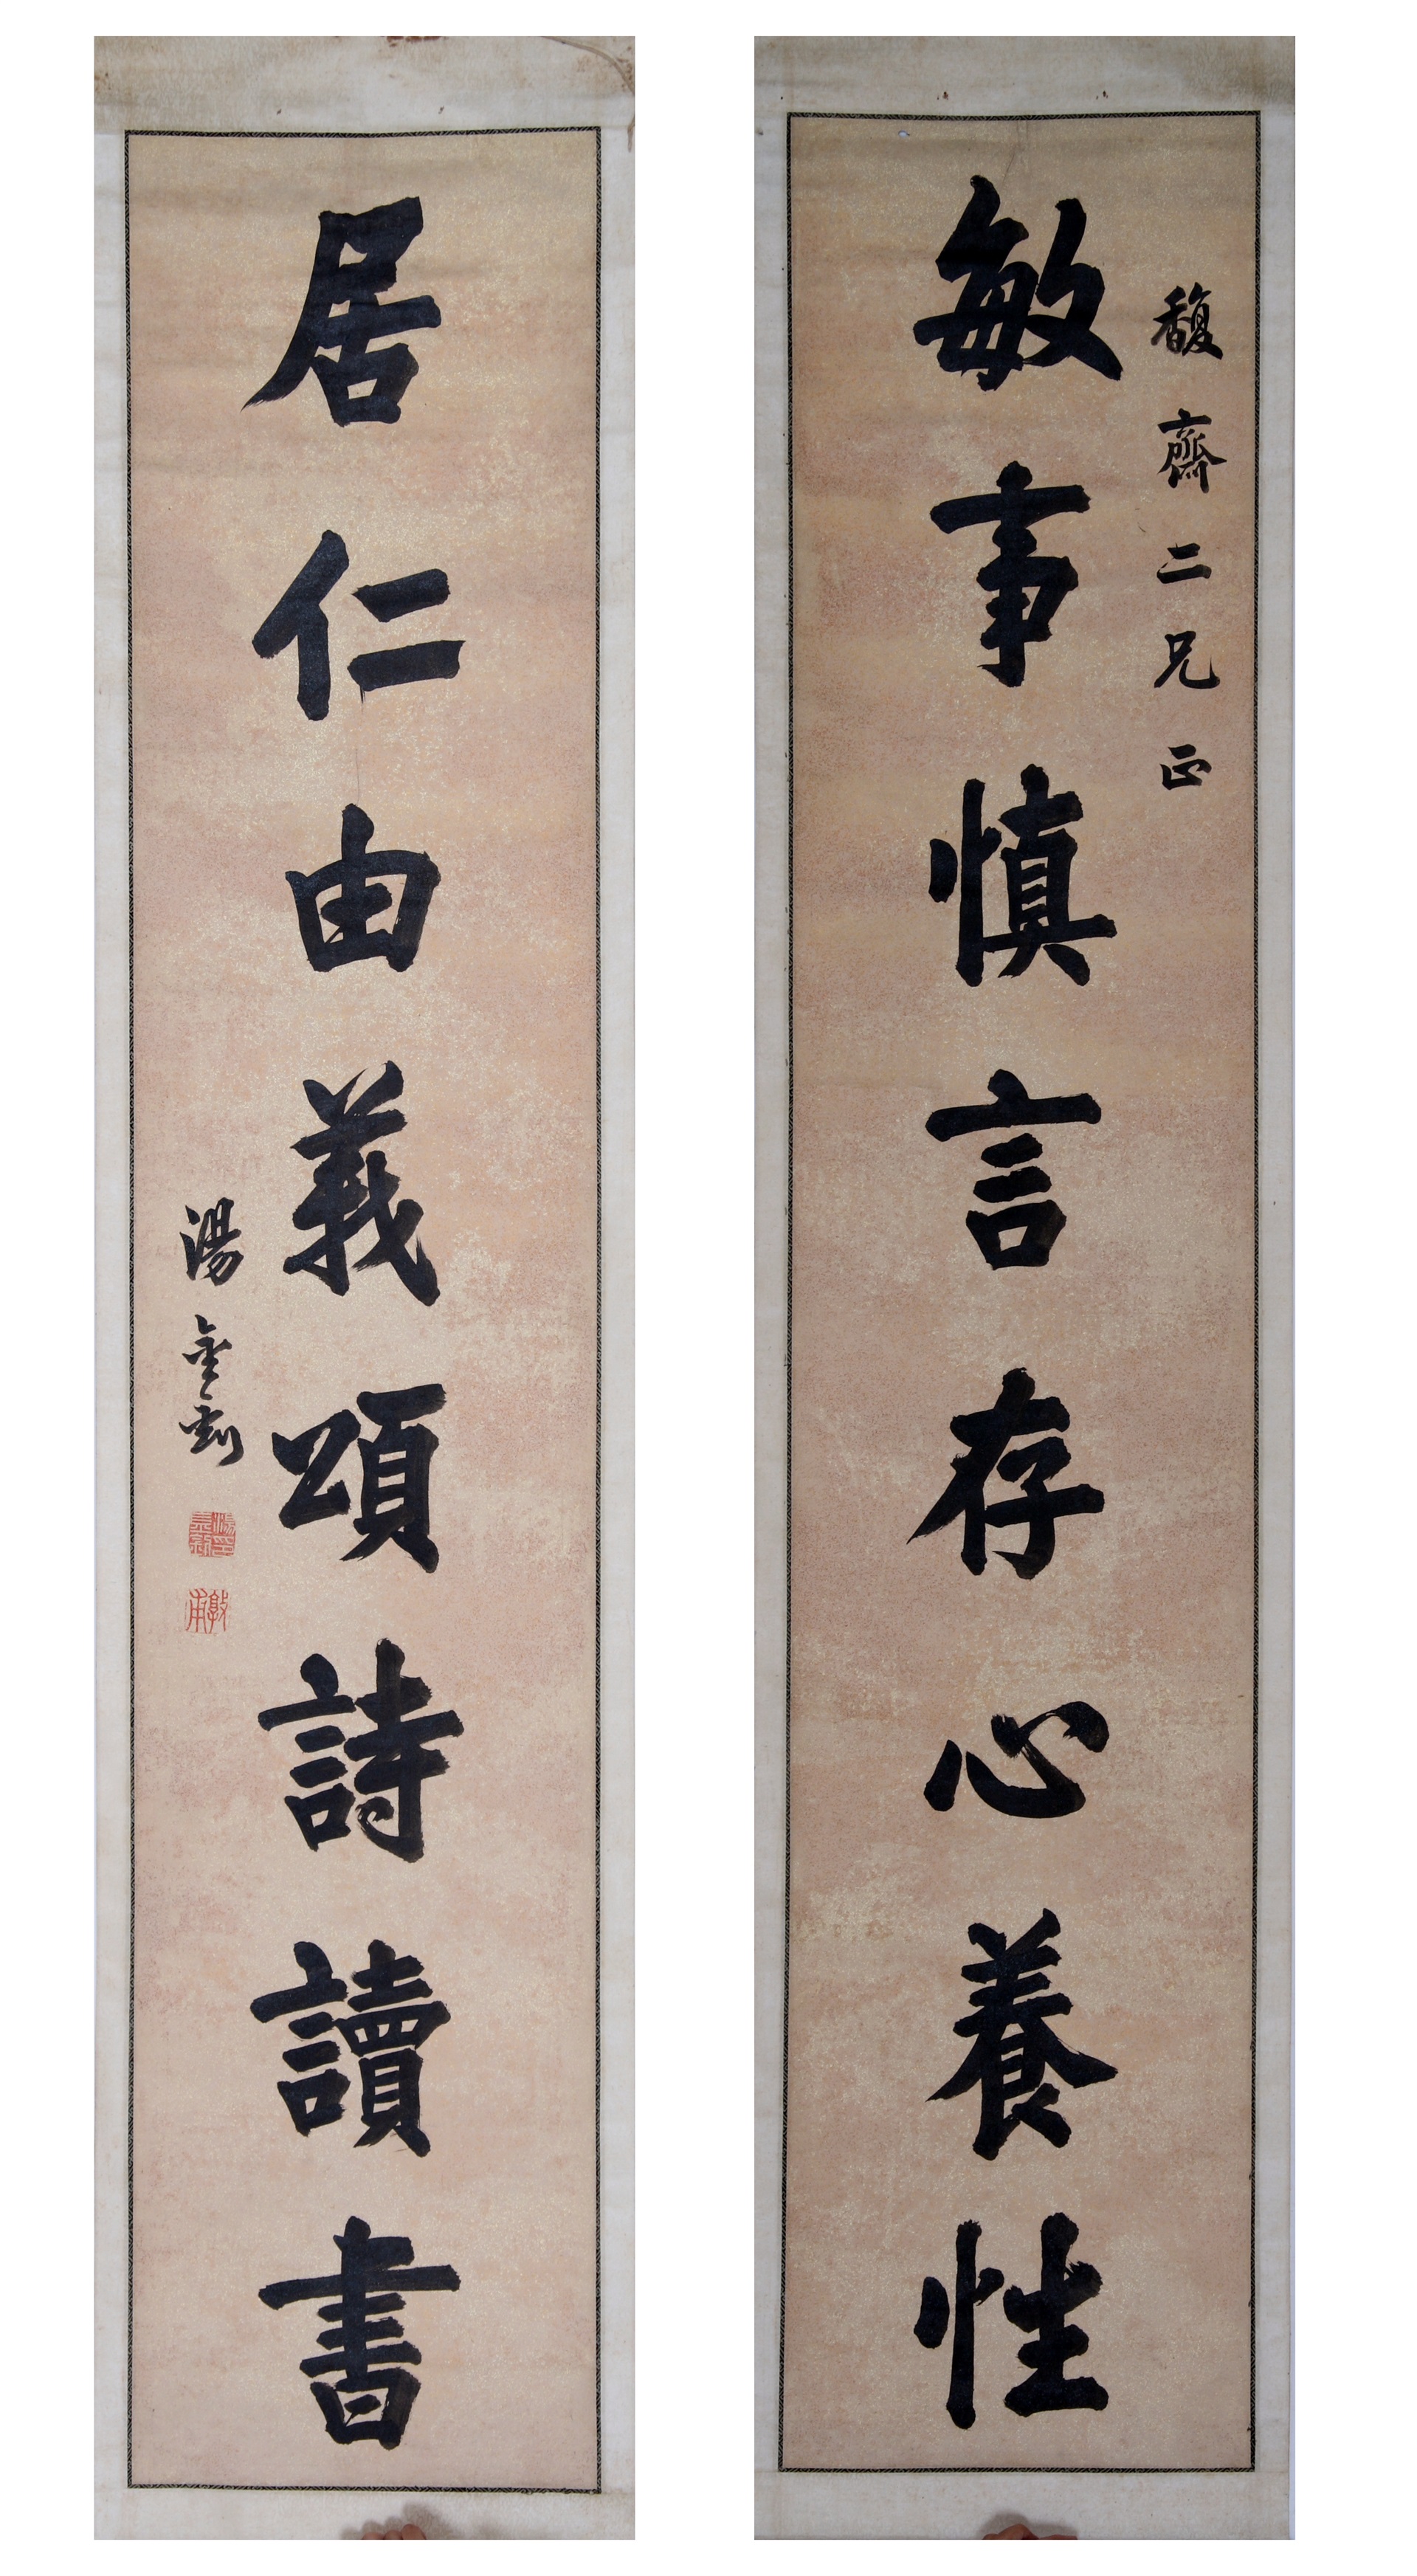 馥齋二兄正
敏事慎言存心養性
居仁由義頌詩讀書
湯金釗
敦甫